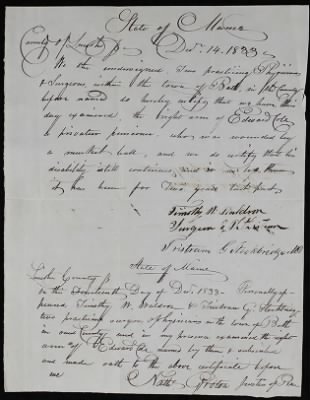 State of Maine
County of Lincoln ss Decr. 14. 1833
We the undersigned Two practicing Physicians
& Surgeons within the town of Bath, in the County
before named do hereby certify that we have this
day examined, the right arm of Edward Cole
a privateer pensioner, who was wounded by
a musket ball, and we do certify that his
disability still continues, and is no less than
it has been for Two years last past
Timothy W. Waldron
Surgeon &
Tristram G. Stockbridge MD
State of Maine
Lincoln County ss
On this fourteenth Day of Decr. 1833 Personally ap-
peared, Timothy W. Waldron & Tristram G. Stockbridge
two practicing surgeon & physicians in the town of Bath
in said County and in my presence examined the right
arm of Edward Cole named by them & subscribed
and made oath to the above certificate before
me Nathl. Justice of Peace